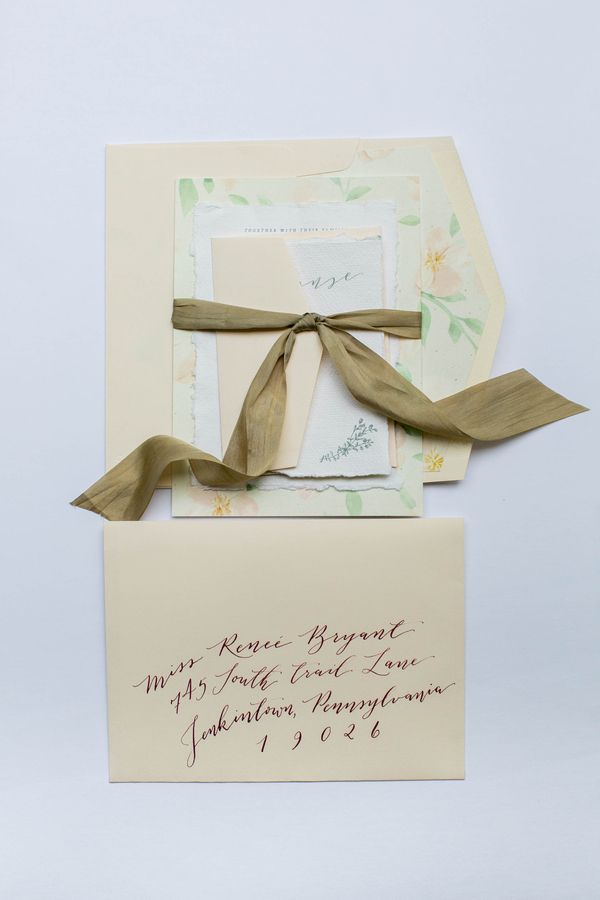 TOGETHER WITH THEIR
Miss Reneé Bryant
745 South Trail Lane
Jenkintown, Pennsylvania
19026